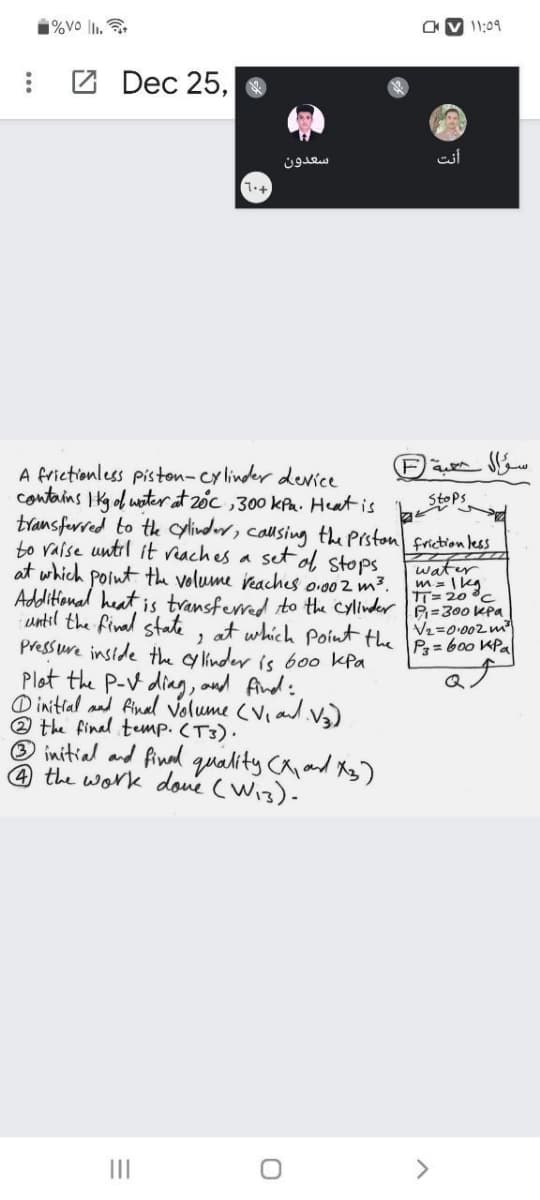 %٧٥
١١:٥٩
Dec 25,
سعدون
أنت
٦٠+
سؤال
F
A frictionless piston-cylinder device
contains 1 Kg of water at 20°C, 300 kPa. Heat is
transferred to the cylinder, causing the Piston
to raise until it reaches a set of stops
at which point the volume reaches 0.002 m³.
Additional heat is transferred to the cylinder
until the final state, at which point the
Pressure inside the cylinder is 600 kPa
Plot the P-V diag, and find:
① initial and final Volume (V₁ and V₃)
② the final temp. (T₃).
③ initial and final quality (X₁ and X₃)
④ the work done (W₁₃).
stops
frictionless
water
m = 1 kg
T₁ = 20 °C
P₁ = 300 kPa
V₂ = 0.002 m³
P₃ = 600 kPa
Q